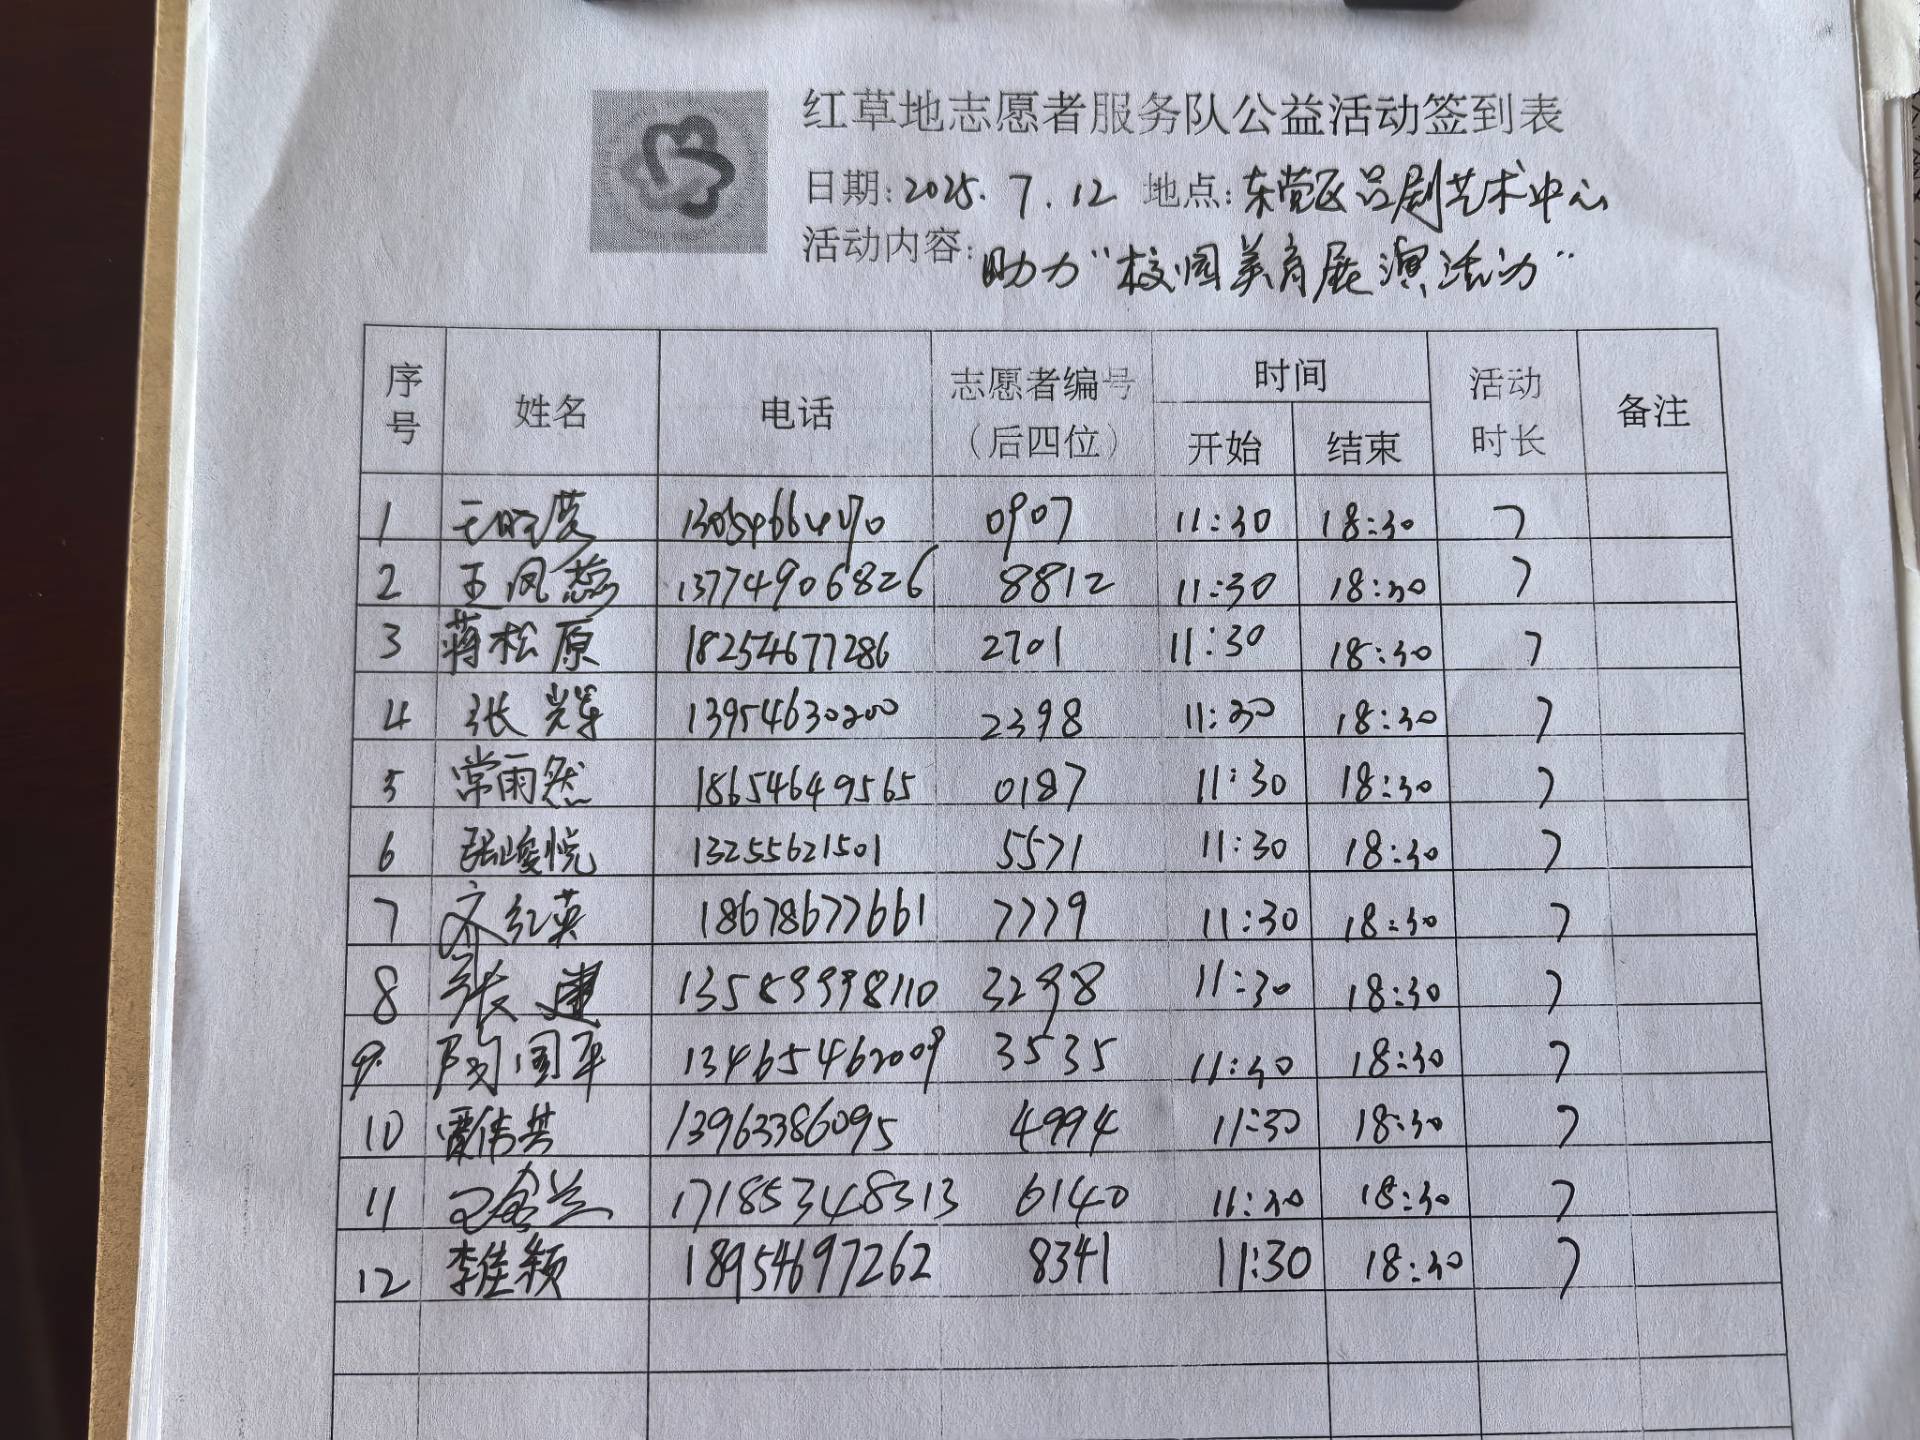 红草地志愿者服务队公益活动签到表
日期:2025.7.12 地点:东营区吕剧艺术中心
活动内容:助力“校园美育展演活动”
序号 姓名 电话 志愿者编号（后四位） 时间 开始 结束 活动时长 备注
1 0907 11:30 18:30 7
2 王凤蕊 13774906826 8812 11:30 18:30 7
3 蒋松原 18254677286 2701 11:30 18:30 7
4 张辉 13954630200 2398 11:30 18:30 7
5 常雨然 18654649565 0187 11:30 18:30 7
6 张峻悦 13255621501 5571 11:30 18:30 7
7 齐红英 18678677661 7779 11:30 18:30 7
8 张建 13589998110 3298 11:30 18:30 7
9. 陶国平 13465462009 3535 11:30 18:30 7
10 贾伟其 13963386095 4994 11:30 18:30 7
11 171853148313 6140 11:30 18:30 7
12 李佳颖 18954697262 8341 11:30 18:30 7